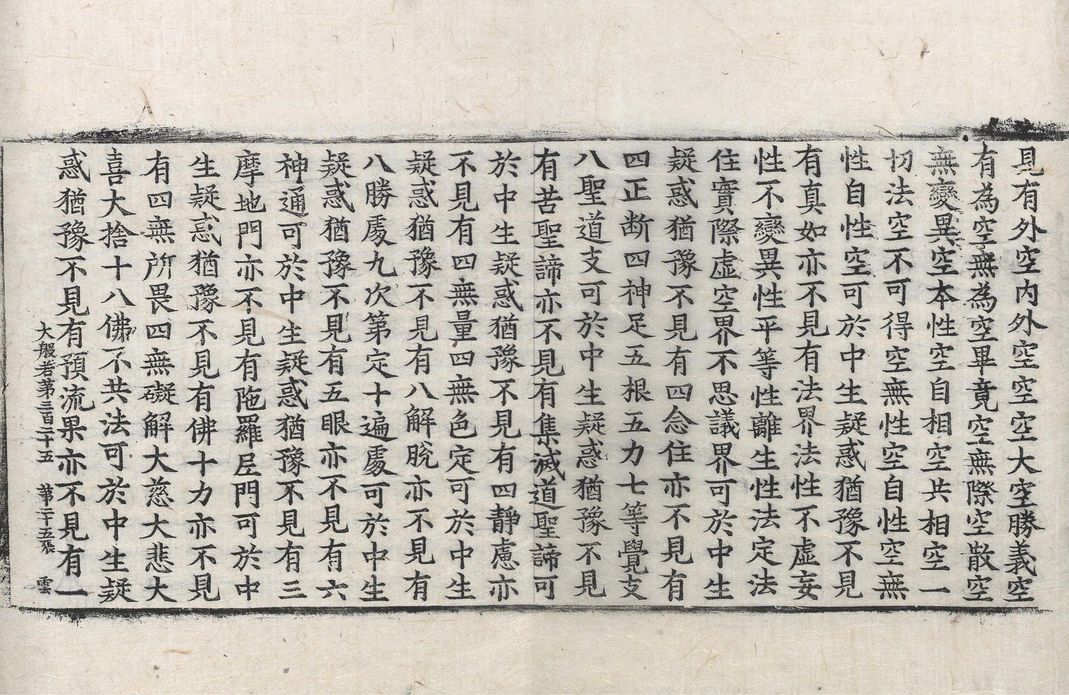 見有外空内外空空空大空勝義空
有為空無為空畢竟空無際空散空
無變異空本性空自相空共相空一
切法空不可得空無性空自性空無
性自性空可於中生疑惑猶豫不見
有真如亦不見有法界法性不虛妄
性不變異性平等性離生性法定法
住實際虛空界不思議界可於中生
疑惑猶豫不見有四念住亦不見有
四正断四神足五根五力七等覺支
八聖道支可於中生疑惑猶豫不見
有苦聖諦亦不見有集滅道聖諦可
於中生疑惑猶豫不見有四靜慮亦
不見有四無量四無色定可於中生
疑惑猶豫不見有八解脫亦不見有
八勝處九次第定十遍處可於中生
疑惑猶豫不見有五眼亦不見有六
神通可於中生疑惑猶豫不見有三
摩地門亦不見有陁羅尼門可於中
生疑惑猶豫不見有佛十力亦不見
有四無所畏四無礙解大慈大悲大
喜大捨十八佛不共法可於中生疑
惑猶豫不見有預流果亦不見有一
大般若第三百二十五 第二十五張 雲